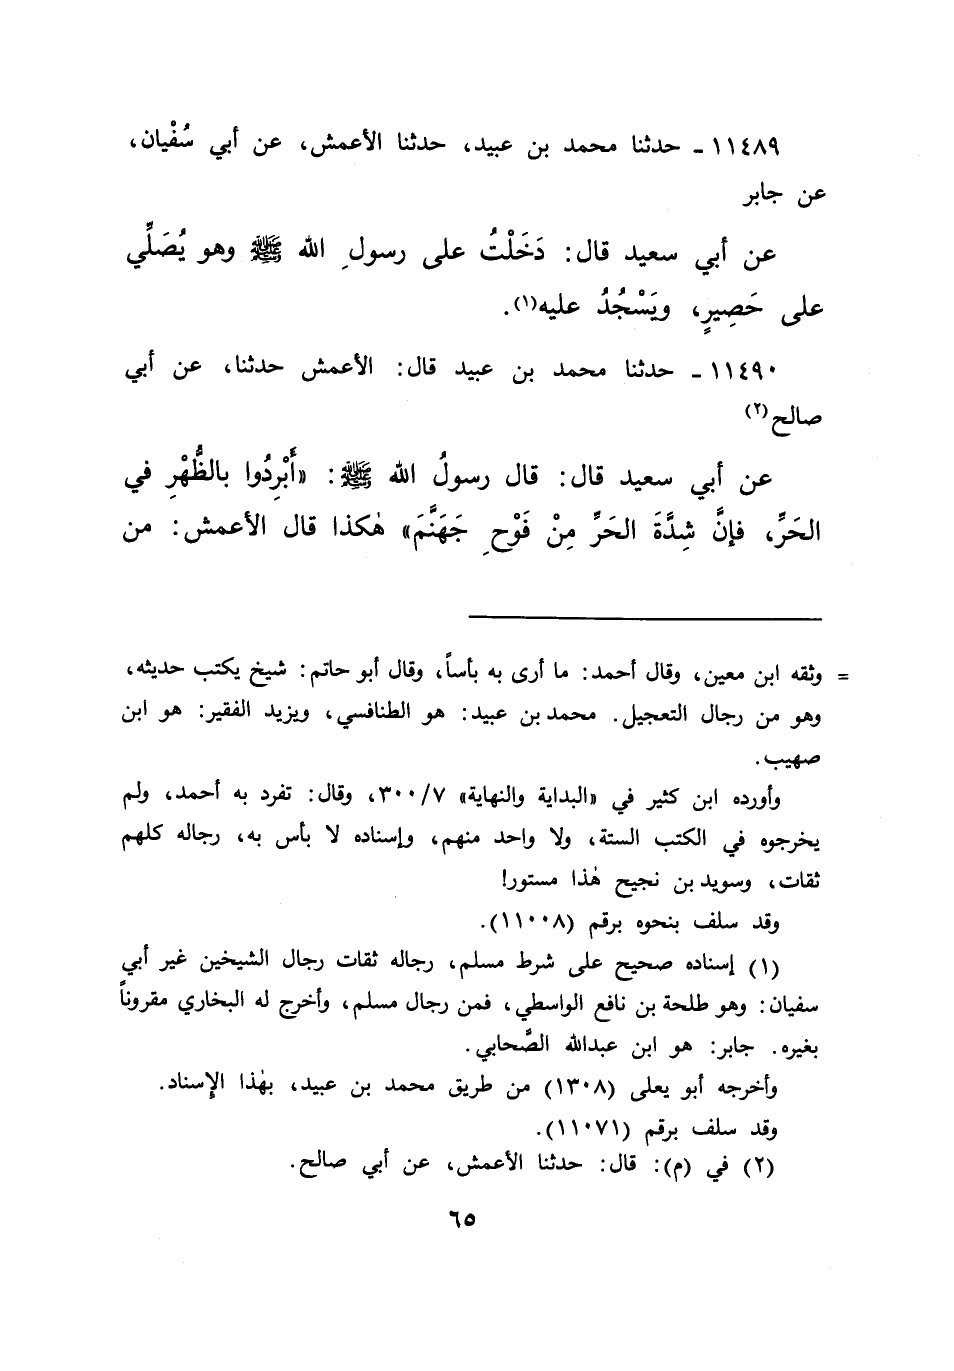 ١١٤٨٩ ـ حدثنا محمد بن عبيد، حدثنا الأعمش، عن أبي سُفْيان،
عن جابر
عن أبي سعيد قال: دَخَلْتُ على رسولِ الله ﷺ وهو يُصَلِّي
على حَصِيرٍ، ويَسْجُدُ عليه(١).
١١٤٩٠ ـ حدثنا محمد بن عبيد قال: الأعمش حدثنا، عن أبي
صالح(٢)
عن أبي سعيد قال: قال رسولُ الله ﷺ: «أَبْرِدُوا بالظُّهْرِ في
الحَرِّ، فإنَّ شِدَّةَ الحَرِّ مِنْ فَوْحِ جَهَنَّمَ» هٰكذا قال الأعمش: من
= وثقه ابن معين، وقال أحمد: ما أرى به بأساً، وقال أبو حاتم: شيخ يكتب حديثه،
وهو من رجال التعجيل. محمد بن عبيد: هو الطنافسي، ويزيد الفقير: هو ابن
صهيب.
وأورده ابن كثير في «البداية والنهاية» ٣٠٠/٧، وقال: تفرد به أحمد، ولم
يخرجوه في الكتب الستة، ولا واحد منهم، وإسناده لا بأس به، رجاله كلهم
ثقات، وسويد بن نجيح هٰذا مستور!
وقد سلف بنحوه برقم (١١٠٠٨).
(١) إسناده صحيح على شرط مسلم، رجاله ثقات رجال الشيخين غير أبي
سفيان: وهو طلحة بن نافع الواسطي، فمن رجال مسلم، وأخرج له البخاري مقروناً
بغيره. جابر: هو ابن عبدالله الصَّحابي.
وأخرجه أبو يعلى (١٣٠٨) من طريق محمد بن عبيد، بهٰذا الإسناد.
وقد سلف برقم (١١٠٧١).
(٢) في (م): قال: حدثنا الأعمش، عن أبي صالح.
٦٥